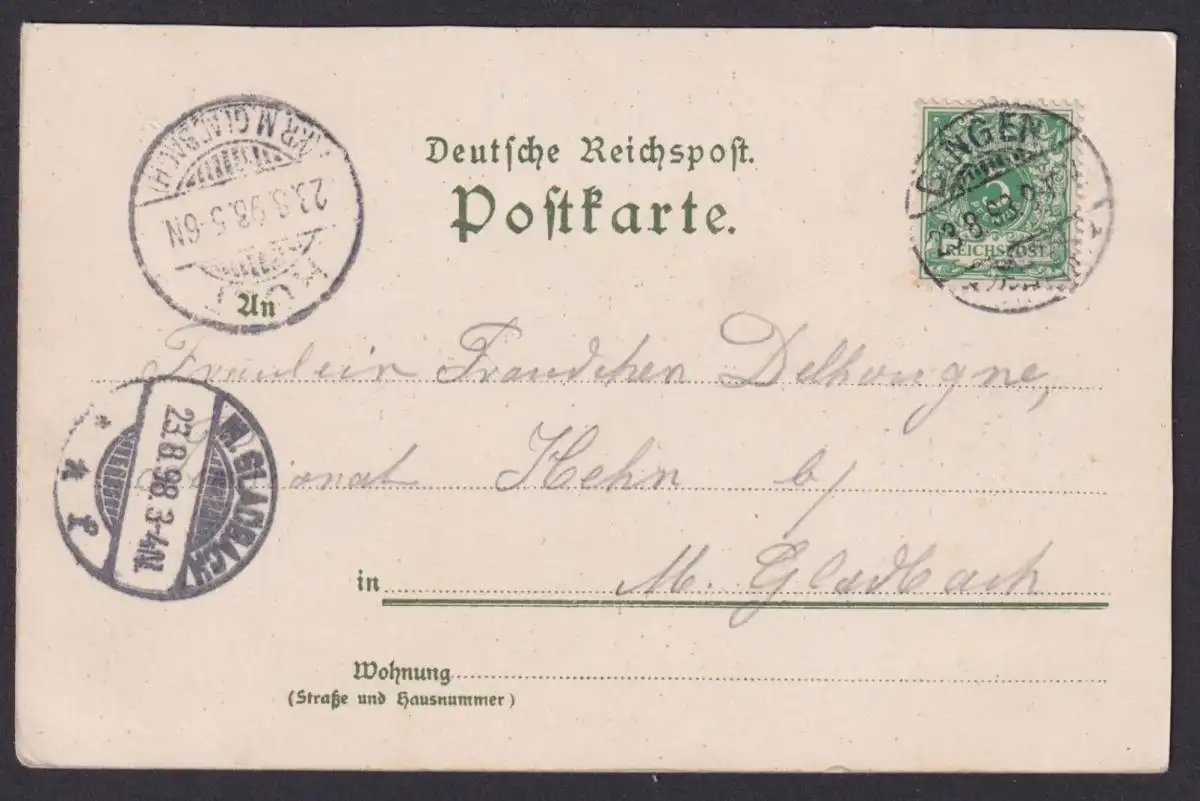 Deutsche Reichspost.
Postkarte.
BINGEN
23.8.98.
REICHSPOST
(KR M.GLADBACH)
23.8.98.5-6N
An
Fräulein Frandchen Delhougne,
Pensionat Hehn b/
M.GLADBACH
23.8.98.3-4N.
in M. Gladbach
Wohnung
(Straße und Hausnummer)